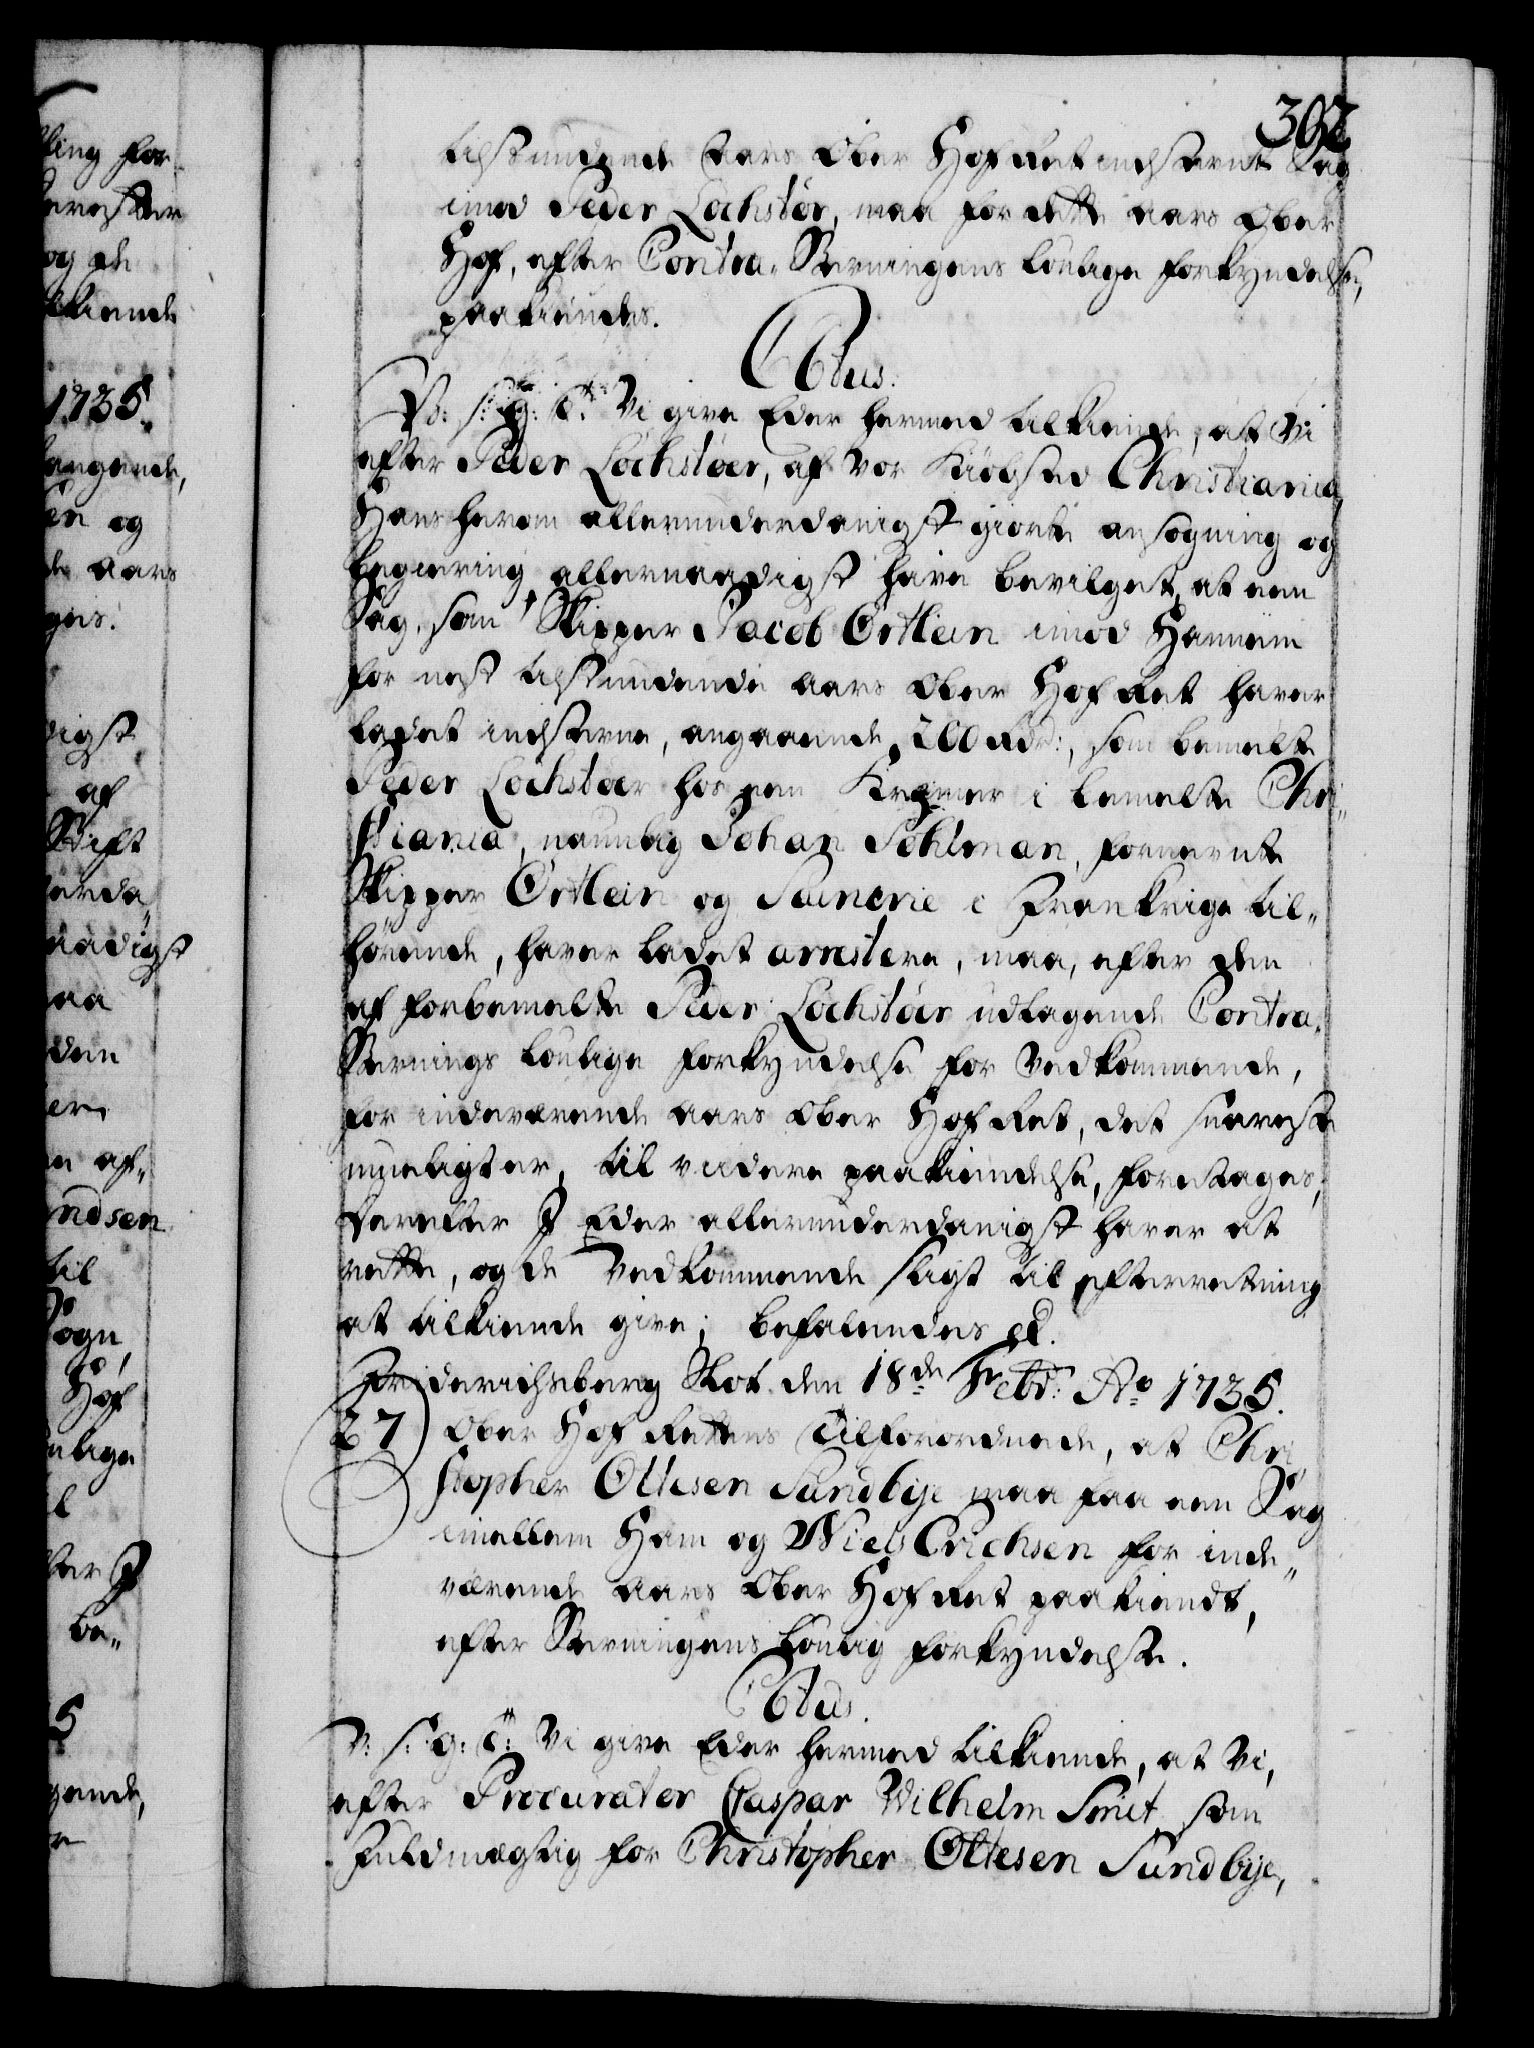 302
tilstundende Aars Ober Hof Ret indstevnt Sag
imod Peder Lochstør, maa for dette Aars Ober
Hof, efter Contra-Stevningens lovlige forkyndelse,
paakiendes.
C Vtus.
V: s: g: t: Vi give Eder hermed tilkiende, at Vi
efter Peder Lochstøer, af Vor Kiøbsted Christiania,
Hans herom allerunderdanigst giorte ansøgning og
begiering allernaadigst have bevilget, at een
Sag, som Skipper Jacob Ortlein imod Hannem
for nest tilstundende Aars Ober Hof Ret haver
ladet indstevne, angaaende 200 Rdr:, som bemelte
Peder Lochstøer hos een Kræmer i bemelte Chri-
stiania, naunlig Johan Pohlman, fornevnte
Skipper Ortlein og Compagnie i Frankrige til-
hørende, haver ladet arrestere, maa, efter den
af forbemelte Peder Lochstøer udtagende Contra-
Stevnings lovlige forkyndelse for Vedkommende,
for indeværende Aars Ober Hof Ret, det snareste
mueligt er, til videre paakiendelse, foretages;
Derefter I Eder allerunderdanigst haver at
rette, og de Vedkommende sligt til efterretning
at tilkiende give; befalendes etc.
Friderichsberg Slot den 18de Febr: Ao 1735.
27) Ober Hof Rettens Tilforordnede, at Chri-
stopher Ottesen Sundbye maa faa een Sag
imellem Ham og Niels Erichsen for inde-
værende Aars Ober Hof Ret paakiendt,
efter Stevningens lovlig forkyndelse.
C Vtus.
V: s: g: t: Vi give Eder hermed tilkiende, at Vi,
efter Procurator Caspar Wilhelm Smit, som
Fuldmægtig for Christopher Ottesen Sundbye,